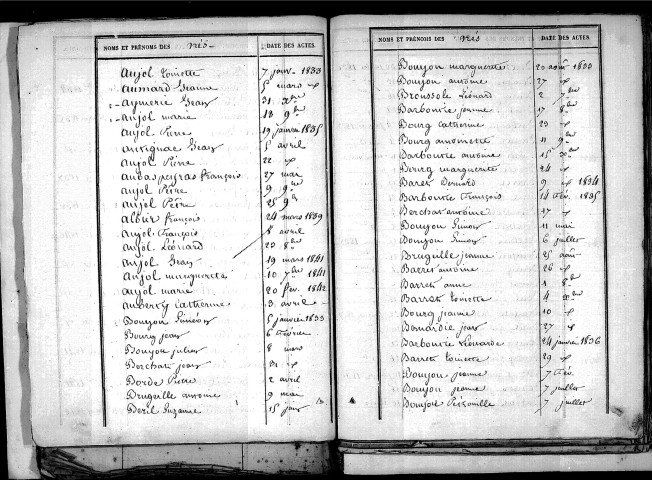 NOMS ET PRÉNOMS DES nés DATE DES ACTES
Anjol Toinette 7 janv. 1833
Aumard Jeanne 5 mars
Aymerie Jean 31 Xbre
Anjol marie 18 9bre
Anjol Pierre 19 janvier 1835
Antignac Jean 5 avril
Anjol Pierre 22
Andaspeyras françois 27 mai
Anjol Pierre 9 9bre
Anjol Pierre 25 9bre
Albier françois 24 mars 1839
Anjol François 8 avril
Anjol Léonard 20 8bre
Anjol Jean 19 mars 1841
Anjol marguerite 10 7bre 1841
Anjol marie 20 fév. 1842
Auberty Catherine 3 avril
Doujon Siméon 5 janvier 1833
Bourg jean 6 février
Boujon julien 8 mars
Berchat jean
Borde Pierre 2 avril
Bruguille antoine 9 mai
Beril Suzanne 15 janv
NOMS ET PRÉNOMS DES nés DATE DES ACTES
Boujon marguerite 20 août 1833
Boujon antoine 27
Broussole Léonard 2 7bre
Barbourie jeanne 17 8bre
Bourg Catherine 23
Bourg antoinette 11 9bre
Barbourie antoine 15 Xbre
Bourg marguerite 24
Baret Bernard 9 1834
Barbourie François 14 Fév. 1835
Berchat antoine 17
Boujon Simon 11 mai
Boujon Simon 6 juillet
Bruguille jeanne 25 août
Barret antoine 26
Barret anne 1 8bre
Barret Toinette 4 Xbre
Bourg jeanne 10
Bernardie jean 27
Barbourie Léonarde 24 janvier 1836
Barret Toinette 29
Doujon jeanne 7 Fév.
Boujon jeanne 7 juillet
Boujon Petronille 7 juillet